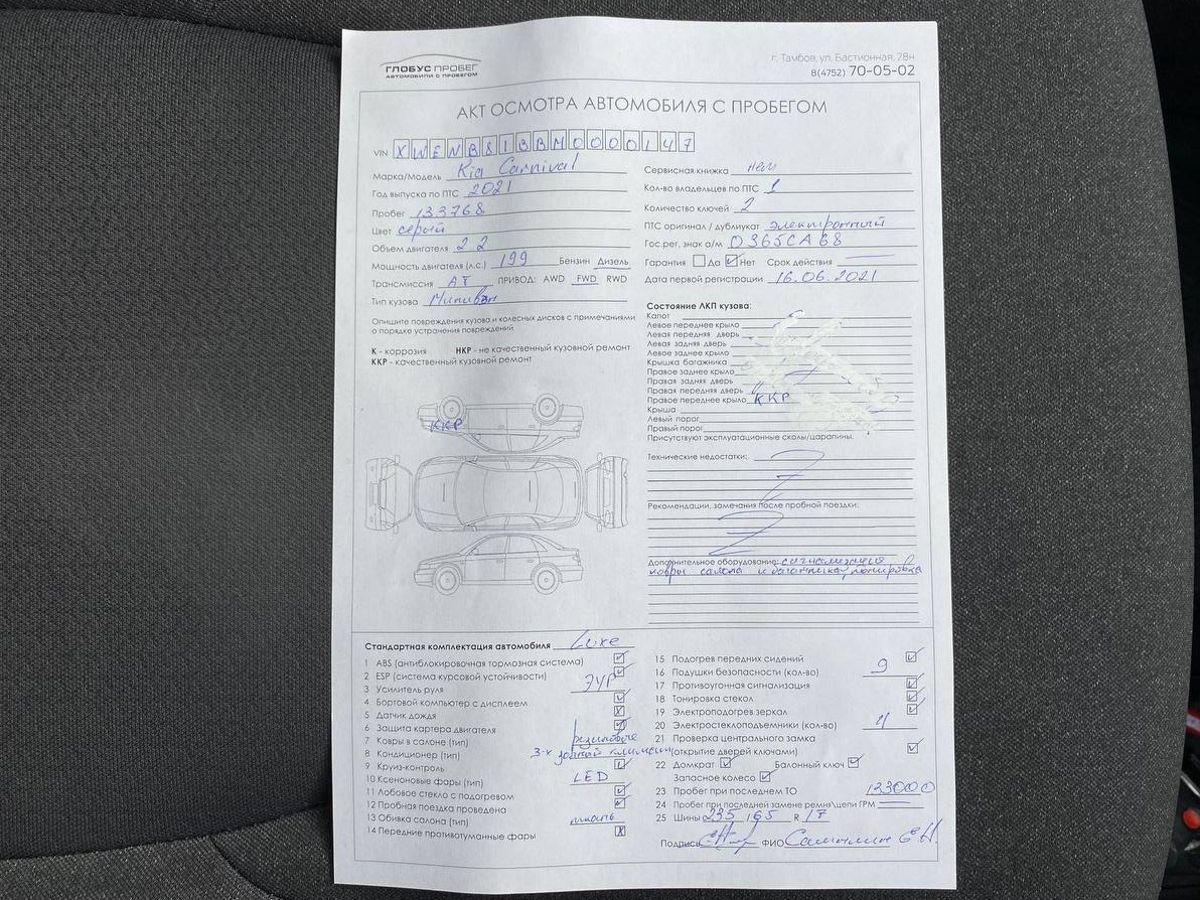 ГЛОБУС ПРОБЕГ
АВТОМОБИЛИ С ПРОБЕГОМ
г. Тамбов, ул. Бастионная, 28н
8(4752) 70-05-02
АКТ ОСМОТРА АВТОМОБИЛЯ С ПРОБЕГОМ
VIN XWENB81BBM0000147
Марка/Модель Kia Carnival
Год выпуска по ПТС 2021
Пробег 133768
Цвет серый
Объем двигателя 2 2
Мощность двигателя (л.с.) 199 Бензин Дизель
Трансмиссия АТ ПРИВОД: AWD FWD RWD
Тип кузова Минивэн
Опишите повреждения кузова и колесных дисков с примечаниями
о порядке устранения повреждений
К - коррозия НКР - не качественный кузовной ремонт
ККР - качественный кузовной ремонт
ККР
Сервисная книжка нет
Кол-во владельцев по ПТС 1
Количество ключей 2
ПТС оригинал / дубликат электронный
Гос.рег. знак а/м О365СА68
Гарантия Да Нет Срок действия
Дата первой регистрации 16.06.2021
Состояние ЛКП кузова:
Капот
Левое переднее крыло
Левая передняя дверь
Левая задняя дверь
Левое заднее крыло
Крышка багажника
Правое заднее крыло
Правая задняя дверь
Правая передняя дверь
Правое переднее крыло ККР
Крыша
Левый порог
Правый порог
Присутствуют эксплуатационные сколы/царапины.
Технические недостатки:
Рекомендации, замечания после пробной поездки:
Дополнительное оборудование: сигнализация
ковры салона и багажника, тонировка
Стандартная комплектация автомобиля Luxe
1 ABS (антиблокировочная тормозная система)
2 ESP (система курсовой устойчивости)
3 Усилитель руля ЭУР
4 Бортовой компьютер с дисплеем
5 Датчик дождя
6 Защита картера двигателя
7 Ковры в салоне (тип) резиновые
8 Кондиционер (тип) 3-х зонный климат
9 Круиз-контроль
10 Ксеноновые фары (тип) LED
11 Лобовое стекло с подогревом
12 Пробная поездка проведена
13 Обивка салона (тип) ткань
14 Передние противотуманные фары
15 Подогрев передних сидений
16 Подушки безопасности (кол-во) 9
17 Противоугонная сигнализация
18 Тонировка стекол
19 Электроподогрев зеркал
20 Электростеклоподъемники (кол-во) 4
21 Проверка центрального замка
(открытие дверей ключами)
22 Домкрат Балонный ключ
Запасное колесо
23 Пробег при последнем ТО 123000
24 Пробег при последней замене ремня\цепи ГРМ
25 Шины 235 / 65 R 17
Подпись ФИО Е.Н.